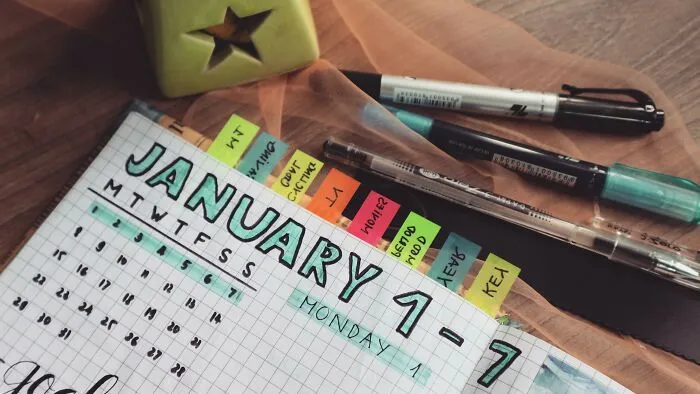 JANUARY 1-7
M T W T F S S
1 2 3 4 5 6 7
8 9 10 11 12 13 14
15 16 17 18 19 20 21
22 23 24 25 26 27 28
29 30 31
MONDAY 1
goals
MOVIES
PERIOD
MOOD
YEAR
KEY